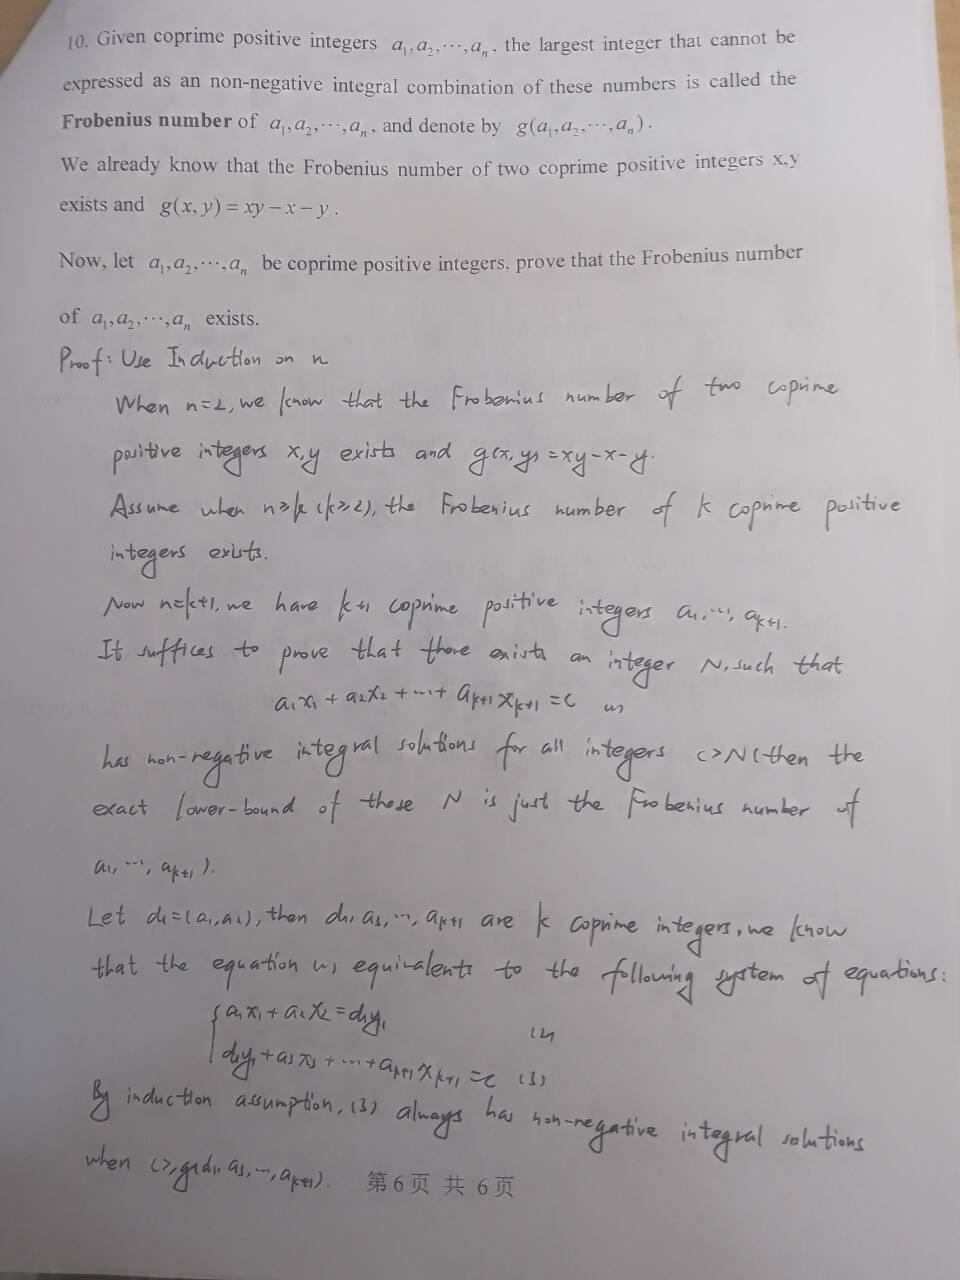 10. Given coprime positive integers a₁,a₂,⋯,aₙ, the largest integer that cannot be
expressed as an non-negative integral combination of these numbers is called the
Frobenius number of a₁,a₂,⋯,aₙ, and denote by g(a₁,a₂,⋯,aₙ).
We already know that the Frobenius number of two coprime positive integers x,y
exists and g(x,y)=xy−x−y.
Now, let a₁,a₂,⋯,aₙ be coprime positive integers, prove that the Frobenius number
of a₁,a₂,⋯,aₙ exists.
Proof: Use Induction on n
When n=2, we know that the Frobenius number of two coprime
positive integers x,y exists and g(x,y)=xy-x-y.
Assume when n≥k (k≥2), the Frobenius number of k coprime positive
integers exists.
Now n=k+1, we have k+1 coprime positive integers a₁,⋯, aₖ₊₁.
It suffices to prove that there exists an integer N, such that
a₁x₁ + a₂x₂ + ⋯ + aₖ₊₁xₖ₊₁ = c (1)
has non-negative integral solutions for all integers c>N (then the
exact lower-bound of these N is just the Frobenius number of
a₁, ⋯, aₖ₊₁).
Let d₁=(a₁,a₂), then d₁, a₃, ⋯, aₖ₊₁ are k coprime integers, we know
that the equation (1) equivalents to the following system of equations:
{ a₁x₁ + a₂x₂ = d₁y₁ (2)
d₁y₁ + a₃x₃ + ⋯ + aₖ₊₁xₖ₊₁ = c (3)
By induction assumption, (3) always has non-negative integral solutions
when c>g(d₁, a₃, ⋯, aₖ₊₁). 第6页 共 6页